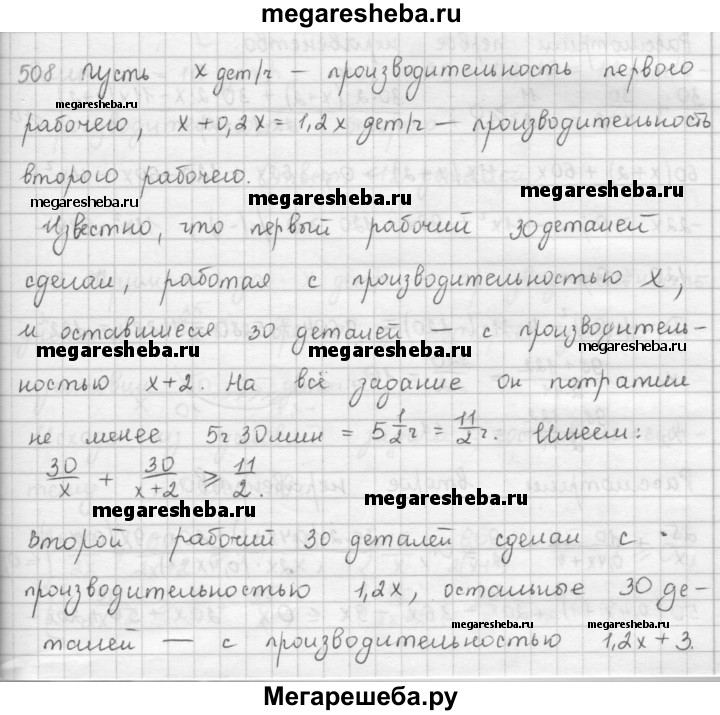 megaresheba.ru
508. Пусть x дет/ч — производительность первого
megaresheba.ru
рабочего, x+0,2x = 1,2x дет/ч — производительность
второго рабочего.
megaresheba.ru megaresheba.ru megaresheba.ru
Известно, что первый рабочий 30 деталей
сделал, работая с производительностью x,
и оставшиеся 30 деталей — с производитель-
megaresheba.ru megaresheba.ru megaresheba.ru
ностью x+2. На всё задание он потратил
не менее 5ч 30мин = 5 1/2 ч = 11/2 ч. Имеем:
30/x + 30/(x+2) ⩾ 11/2.
megaresheba.ru megaresheba.ru
Второй рабочий 30 деталей сделал с
производительностью 1,2x, остальные 30 де-
megaresheba.ru megaresheba.ru
талей — с производительностью 1,2x + 3.
Мегарешеба.ру